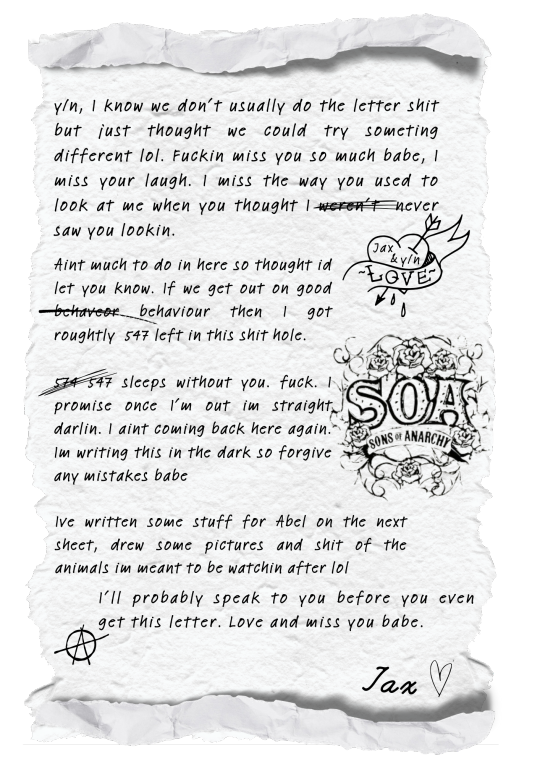 y/n, I know we don't usually do the letter shit
but just thought we could try someting
different lol. Fuckin miss you so much babe, I
miss your laugh. I miss the way you used to
look at me when you thought I weren't never
saw you lookin.
Jax
& y/n
~LOVE~
Aint much to do in here so thought id
let you know. If we get out on good
behaveor behaviour then I got
roughtly 547 left in this shit hole.
SOA
SONS OF ANARCHY
574 547 sleeps without you. fuck. I
promise once I'm out im straight
darlin. I aint coming back here again.
Im writing this in the dark so forgive
any mistakes babe
Ive written some stuff for Abel on the next
sheet, drew some pictures and shit of the
animals im meant to be watchin after lol
I'll probably speak to you before you even
get this letter. Love and miss you babe.
Jax